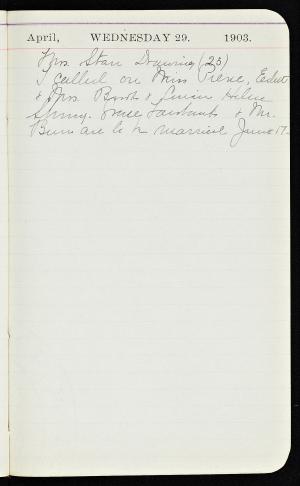 April, WEDNESDAY 29. 1903.
Mrs. Starr Drawing (25)
I called on Miss Pierce,
& Mrs. Booth &
Grace Fairbanks & Mr.
Burr are to be married June 17.